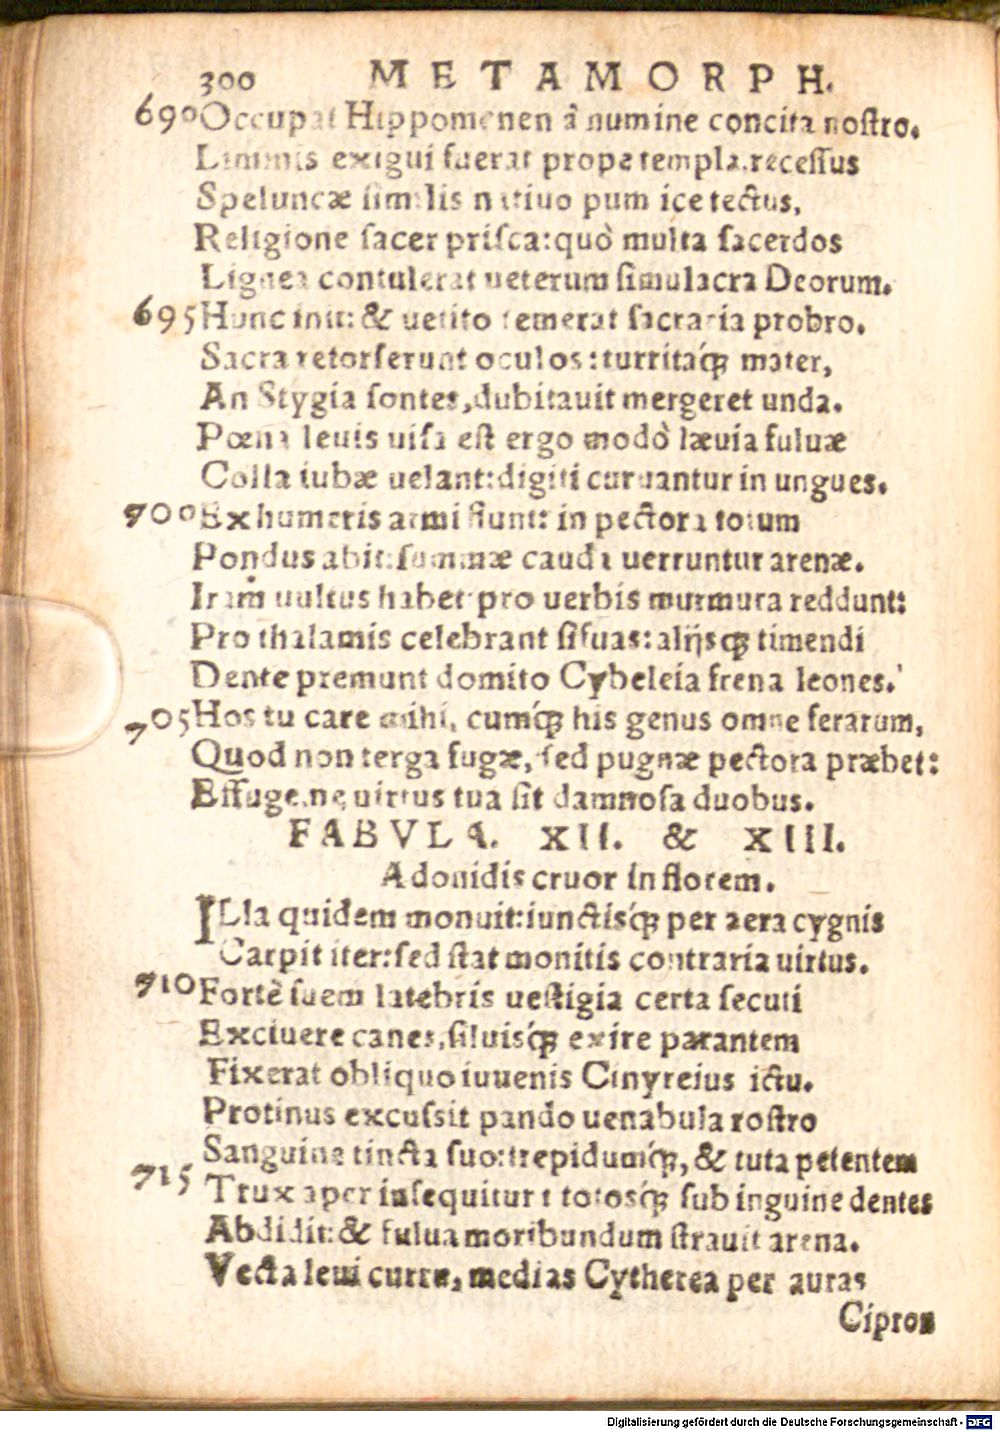 300 METAMORPH.
690 Occupat Hippomenen à numine concita nostro.
Luminis exigui fuerat prope templa, recessus
Speluncæ similis natiuo pumice tectus,
Religione sacer prisca: quò multa sacerdos
Lignea contulerat ueterum simulacra Deorum.
695 Hunc init: & uetito temerat sacraria probro.
Sacra retorserunt oculos: turritaq́ꝫ mater,
An Stygia sontes, dubitauit mergeret unda.
Pœna leuis uisa est ergo modò læuia fuluæ
Colla iubæ uelant: digiti curuantur in ungues.
700 Ex humeris armi fiunt: in pectora totum
Pondus abit: summæ cauda uerruntur arenæ.
Iram uultus habet pro uerbis murmura reddunt:
Pro thalamis celebrant siluas: alijsqꝫ timendi
Dente premunt domito Cybeleia frena leones.
705 Hos tu care mihi, cumq́ꝫ his genus omne ferarum,
Quod non terga fugæ, sed pugnæ pectora præbet:
Effuge, ne uirtus tua sit damnosa duobus.
FABVLA. XII. & XIII.
Adonidis cruor in florem.
ILla quidem monuit: iunctisq́ꝫ per aera cygnis
Carpit iter: sed stat monitis contraria uirtus.
710 Fortè suem latebris uestigia certa secuti
Exciuere canes, siluisq́ꝫ exire parantem
Fixerat obliquo iuuenis Cinyreius ictu.
Protinus excussit pando uenabula rostro
Sanguine tincta suo: trepidumq́ꝫ, & tuta petentem
715 Trux aper insequitur: totosq́ꝫ sub inguine dentes
Abdidit: & fulua moribundum strauit arena.
Vecta leui curru, medias Cytherea per auras
Cipron
Digitalisierung gefördert durch die Deutsche Forschungsgemeinschaft - DFG